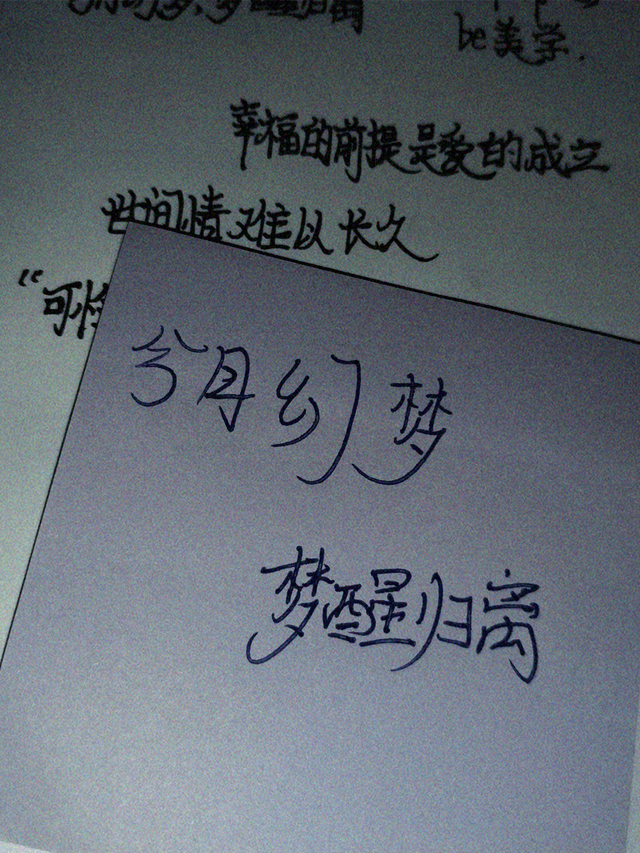 梦醒归离
be美学.
幸福的前提是爱的成立
世间情难以长久
“可
兮月幻梦
梦醒归离